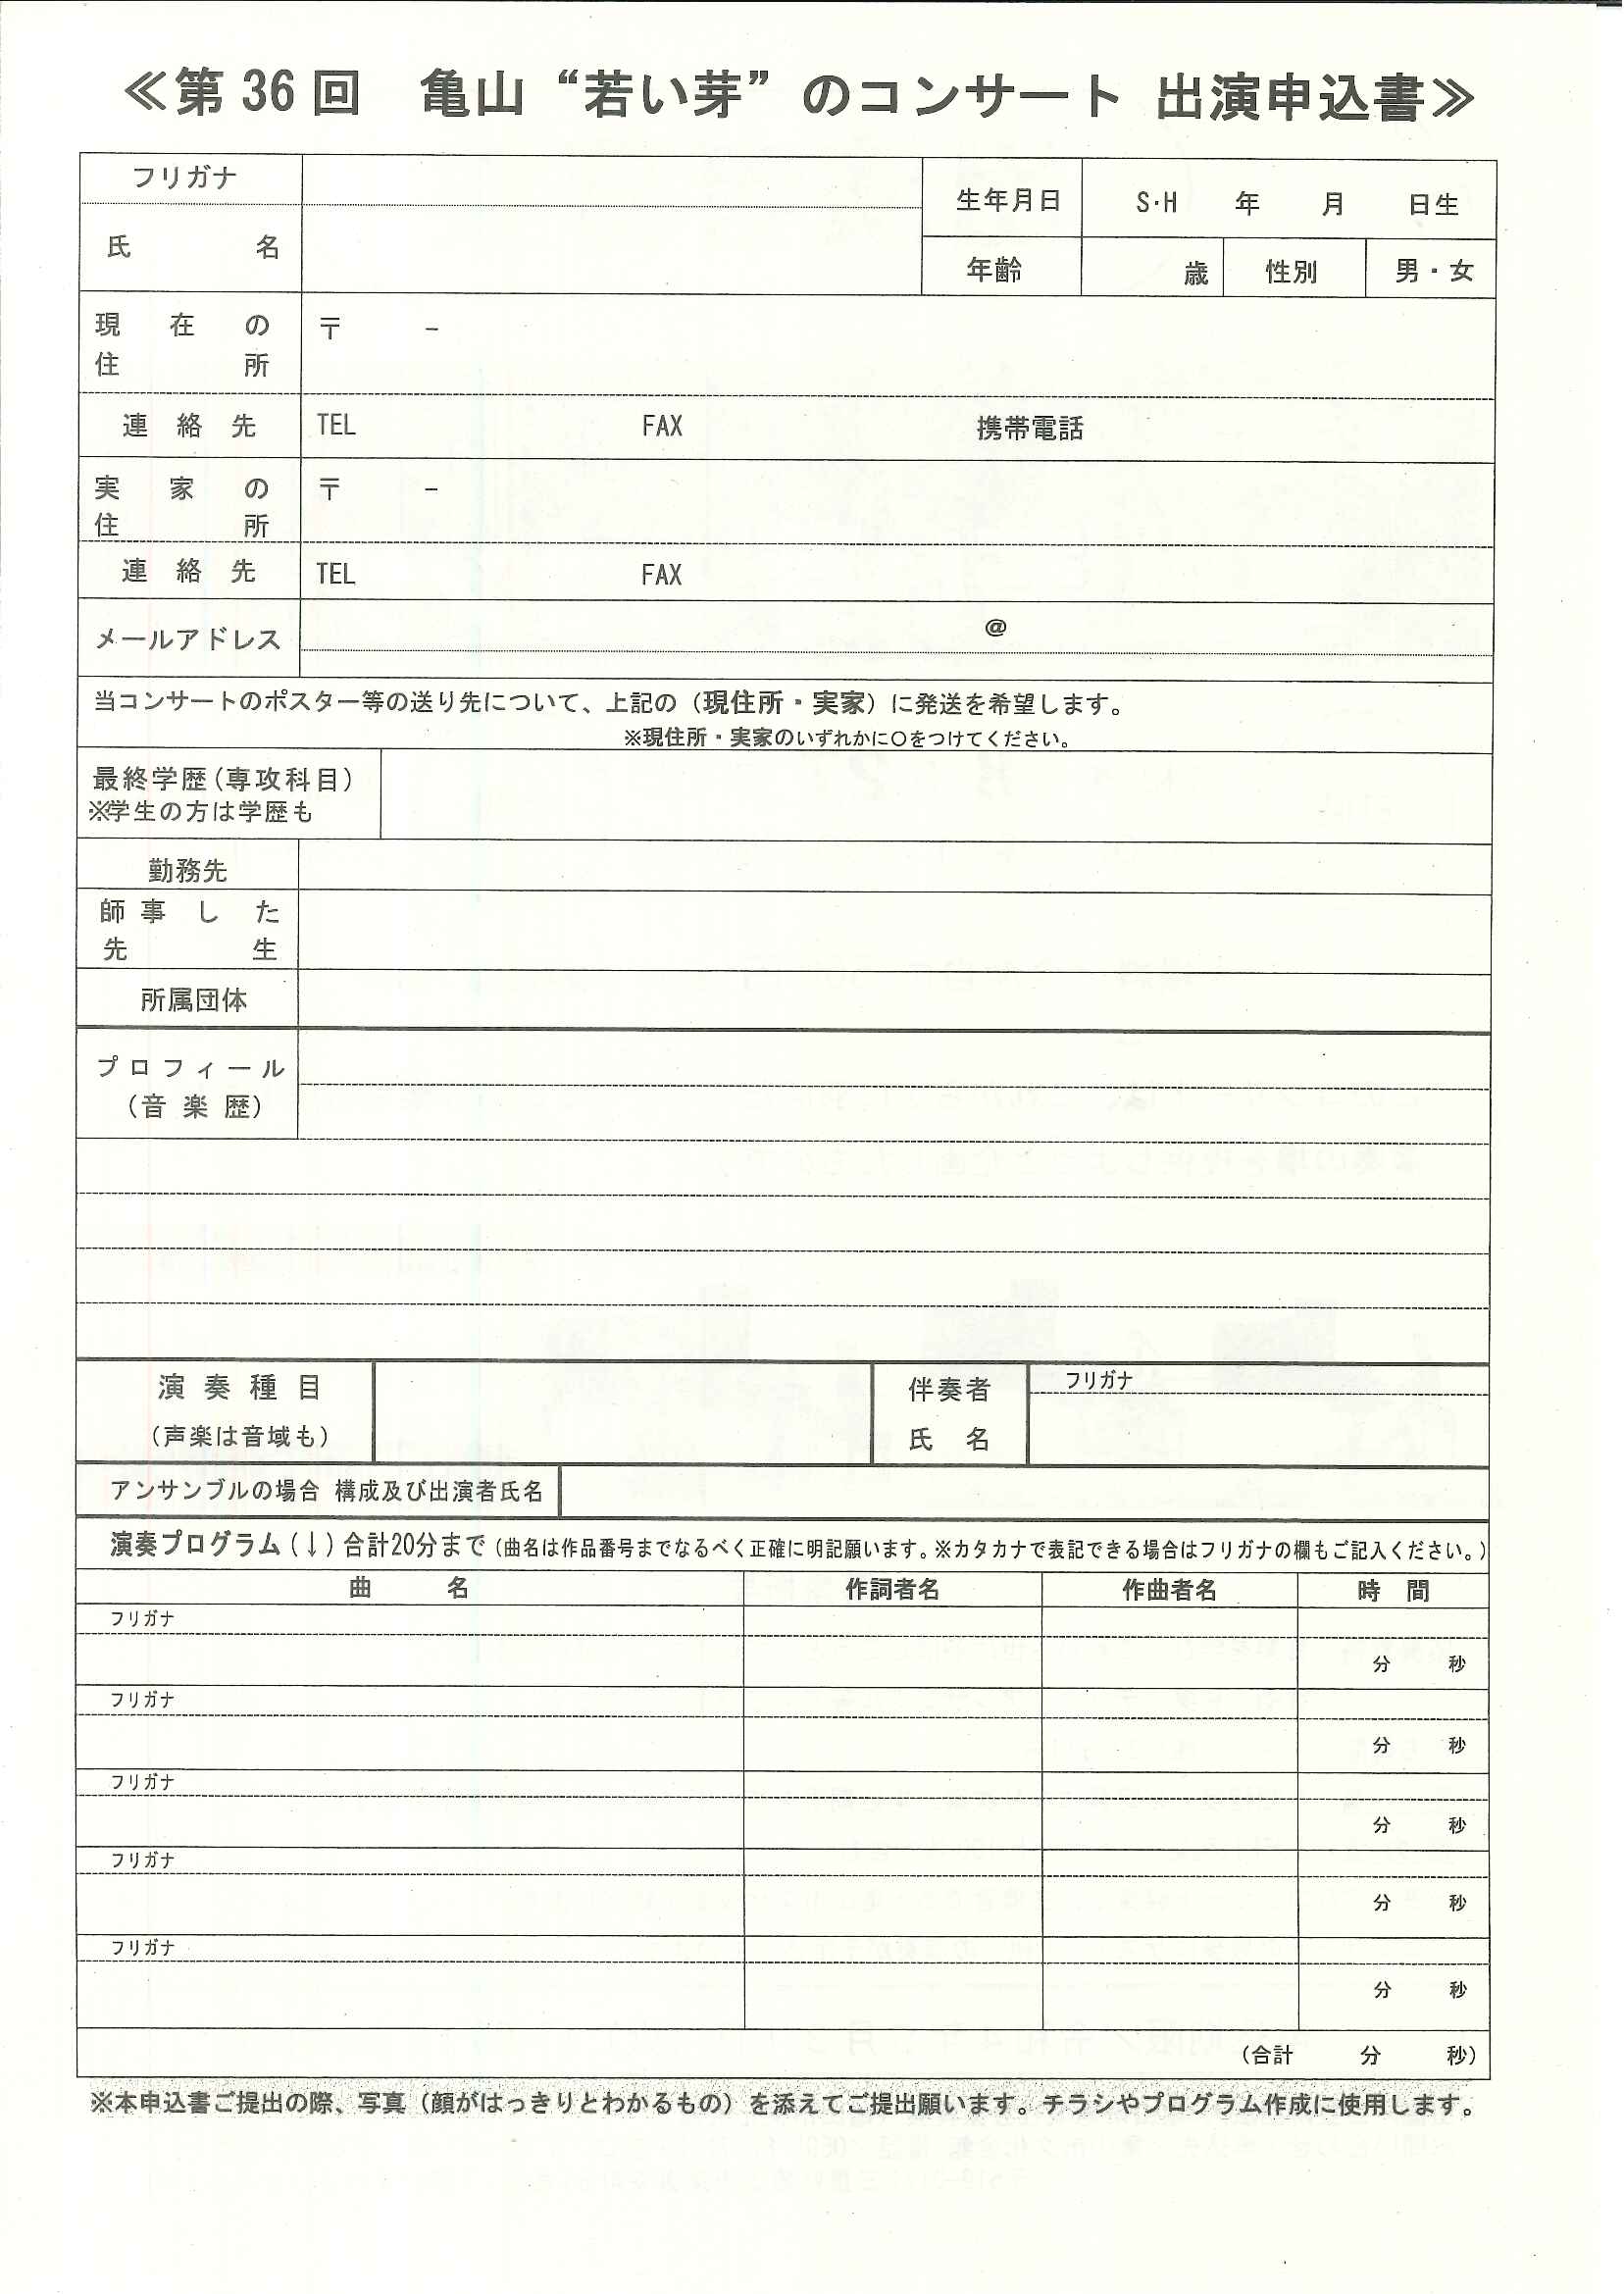 ≪第36回 亀山“若い芽”のコンサート 出演申込書≫
フリガナ
氏名
生年月日 S・H 年 月 日生
年齢 歳 性別 男・女
現在の
住所
〒 －
連絡先 TEL FAX 携帯電話
実家の
住所
〒 －
連絡先 TEL FAX
メールアドレス @
当コンサートのポスター等の送り先について、上記の（現住所・実家）に発送を希望します。
※現住所・実家のいずれかに〇をつけてください。
最終学歴(専攻科目)
※学生の方は学歴も
勤務先
師事した
先生
所属団体
プロフィール
（音楽歴）
演奏種目
（声楽は音域も）
伴奏者
氏名
フリガナ
アンサンブルの場合 構成及び出演者氏名
演奏プログラム(↓)合計20分まで（曲名は作品番号までなるべく正確に明記願います。※カタカナで表記できる場合はフリガナの欄もご記入ください。）
曲名 作詞者名 作曲者名 時間
フリガナ
分 秒
フリガナ
分 秒
フリガナ
分 秒
フリガナ
分 秒
フリガナ
分 秒
（合計 分 秒）
※本申込書ご提出の際、写真（顔がはっきりとわかるもの）を添えてご提出願います。チラシやプログラム作成に使用します。